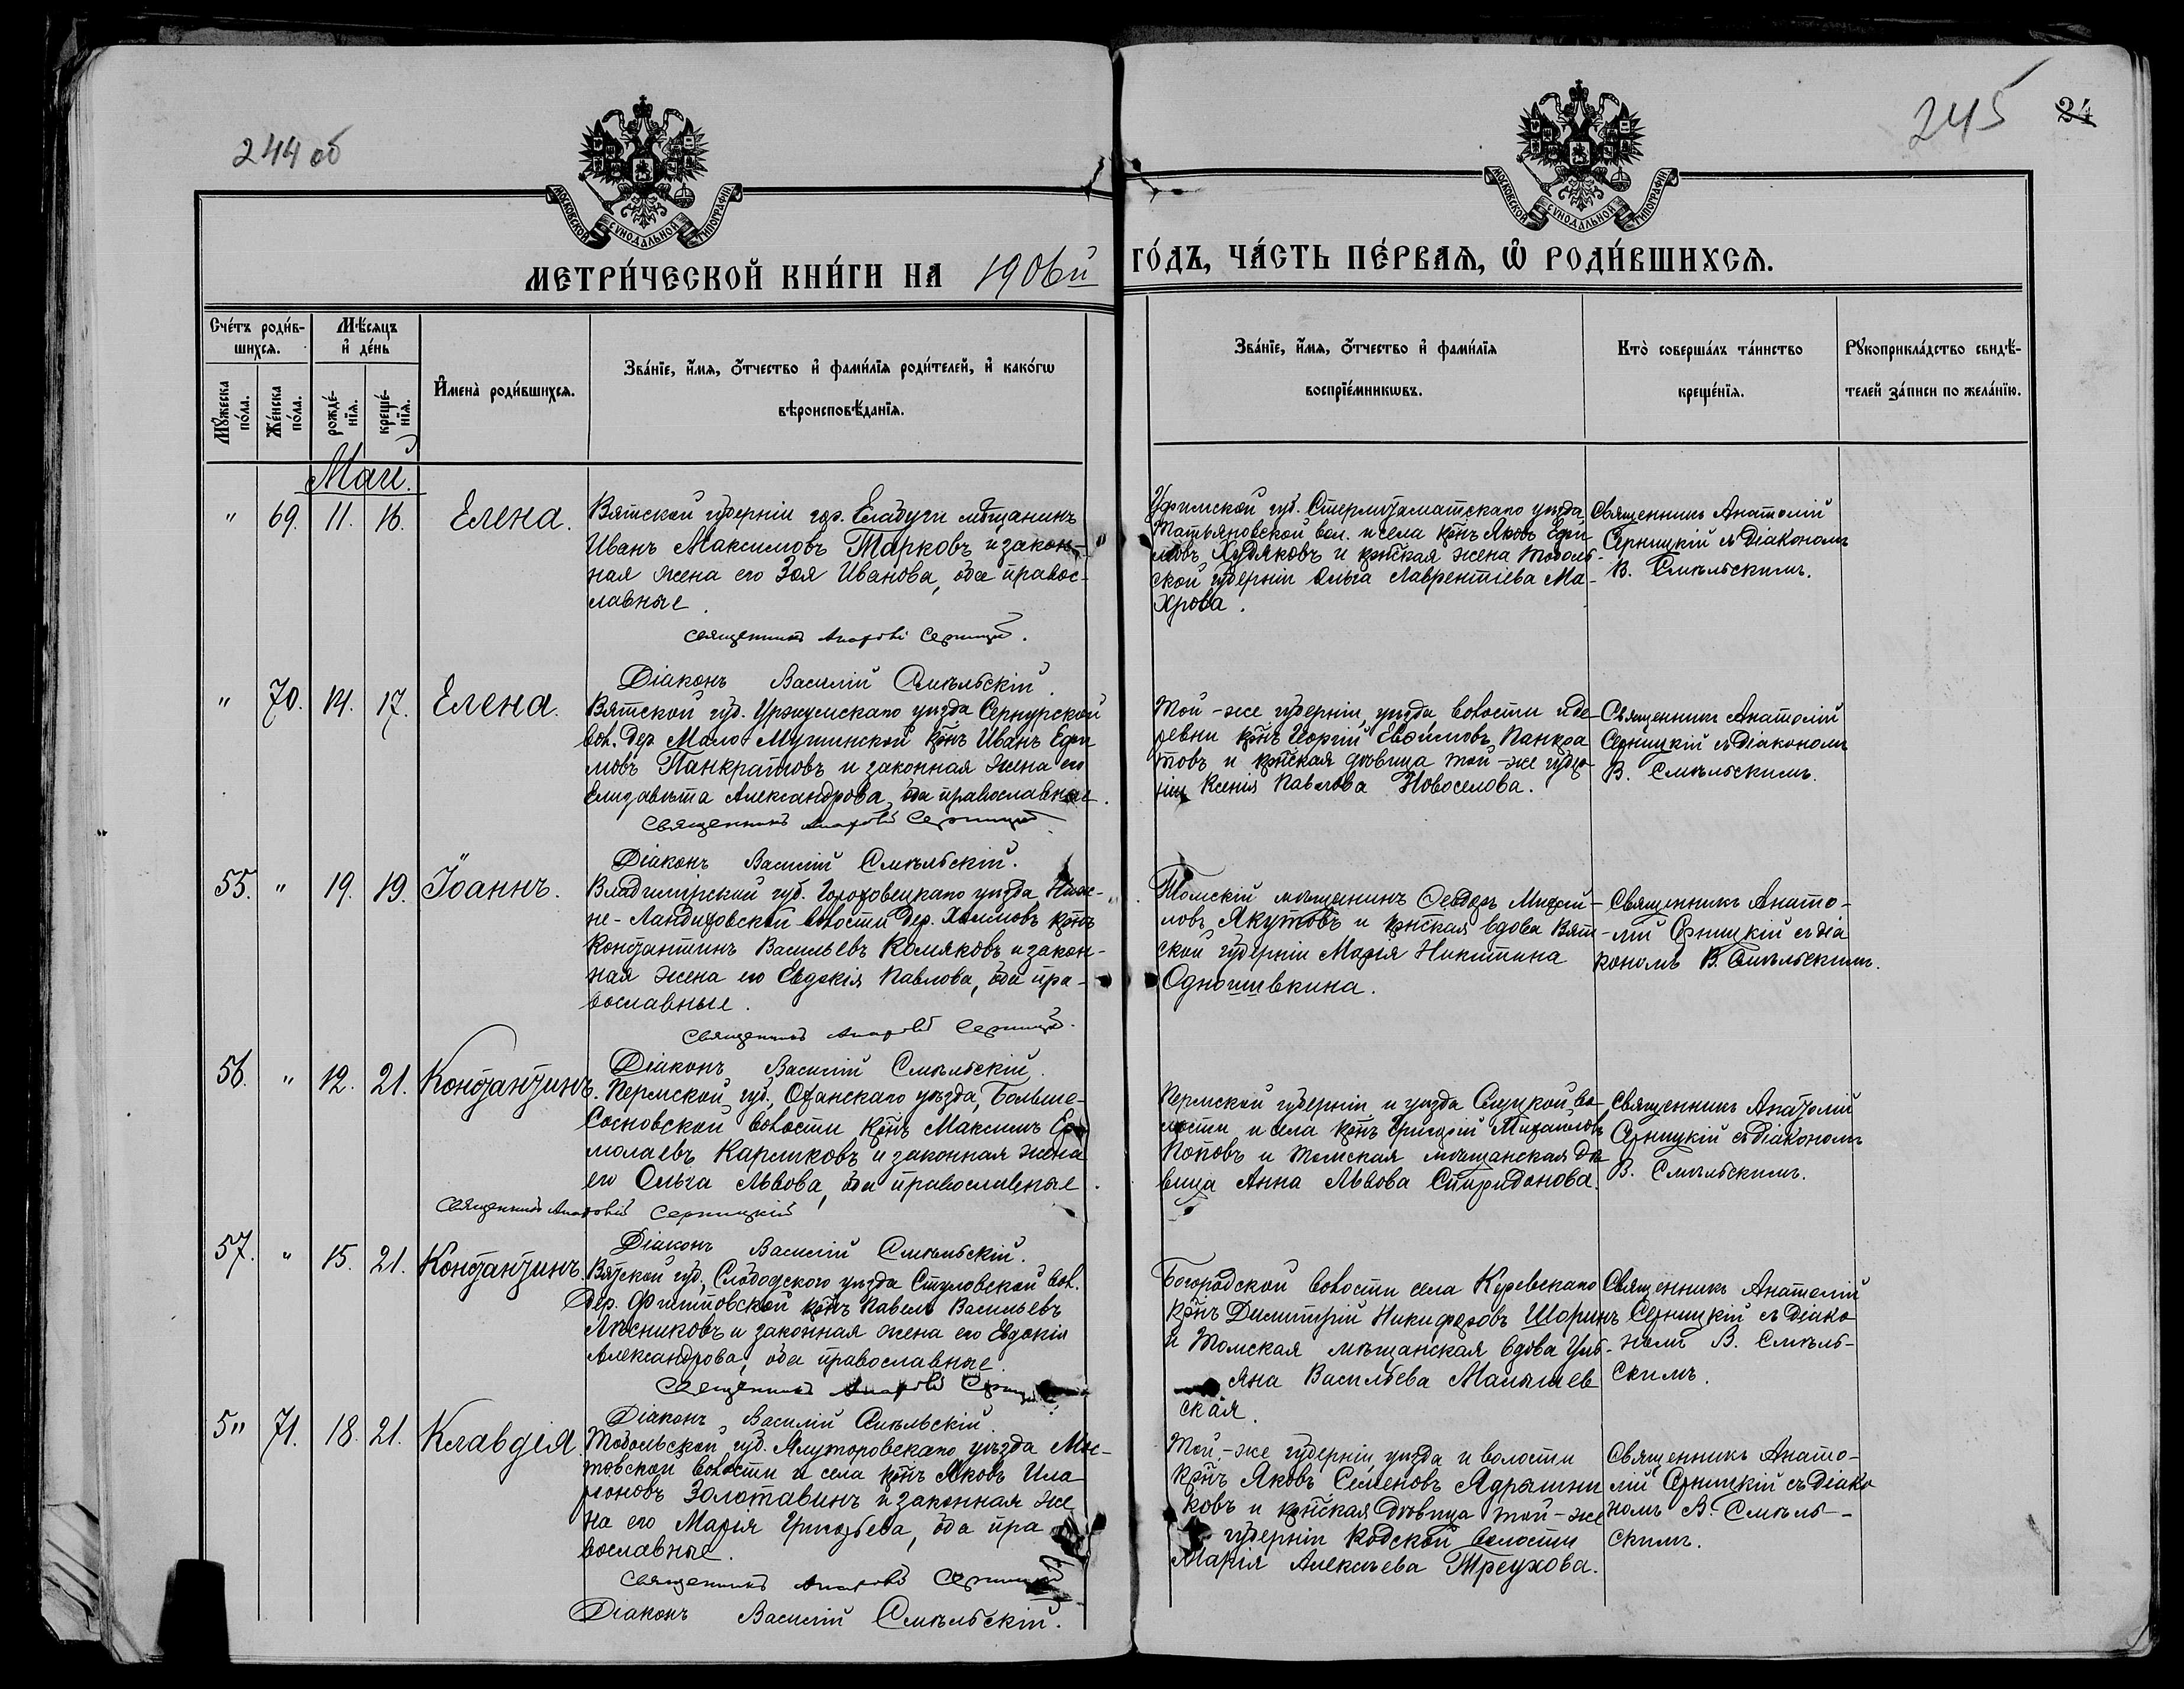 244 об
245
24
МОСКОВСКОЙ СѴНОДАЛЬНОЙ ТИПОГРАФІИ
МОСКОВСКОЙ СѴНОДАЛЬНОЙ ТИПОГРАФІИ
МЕТРИ́ЧЕСКОЙ КНИ́ГИ НА 1906й ГО́ДЪ, ЧА́СТЬ ПЕ́РВАѦ, Ѡ҆ РОДИ́ВШИХСѦ.
Сче́тъ роди́в-
шихсѧ.
Мѣ́сѧцъ
и҆ де́нь
Мꙋ́жеска
по́ла.
Же́нска
по́ла.
рожде́-
нїѧ.
креще́-
нїѧ.
И҆мена̀ роди́вшихсѧ.
Зва́нїе, и҆́мѧ, ѻ҆́тчество и҆ фами́лїѧ роди́телей, и҆ како́гѡ
вѣроисповѣ́данїѧ.
Зва́нїе, и҆́мѧ, ѻ҆́тчество и҆ фами́лїѧ
воспрїе́мникѡвъ.
Кто̀ соверша́лъ та́инство
креще́нїѧ.
Рꙋкоприкла́дство свидѣ́-
телей за́писи по жела́нїю.
Май.
" 69. 11. 16. Елена.
Вятской губерніи гор. Елабуги мѣщанинъ
Иванъ Максимовъ Тарковъ и закон-
ная жена его Зоя Ивановa, оба правос-
лавные.
Священникъ Анатолій Серницкій.
Діаконъ Василій Смѣльскій.
Уфимской губ. Стерлитаматскаго уѣзда
Татьяновской вол. и села крнъ Яковъ Ефи
мовъ Худяковъ и крнская жена Тоболь-
ской губерніи Ольга Лаврентіева Ма-
хрова.
Священникъ Анатолій
Серницкій съ діакономъ
В. Смѣльскимъ.
" 70. 14. 17. Елена.
Вятской губ. Уржумскаго уѣзда Сернурской
вол. дер. Мало-Мушинской крнъ Иванъ Ефи
мовъ Панкратовъ и законная жена его
Елизавета Александрова, оба православные.
Священникъ Анатолій Серницкій
Діаконъ Василій Смѣльскій.
Той-же губерніи, уѣзда, волости и де-
ревни крнъ Георгій Евфимовъ Панкра
товъ и крнская дѣвица той-же губер-
ніи Ксенія Павлова Новоселова.
Священникъ Анатолій
Серницкій съ діакономъ
В. Смѣльскимъ.
55. " 19. 19. Іоаннъ.
Владимірской губ. Гороховецкаго уѣзда, Ниж-
не-Ландиховской волости дер. крнъ
Константинъ Васильевъ Комяковъ и закон-
ная жена его Евдокія Павлова, оба пра-
вославные.
Священникъ Анатолій Серницкій.
Діаконъ Василій Смѣльскій.
Томскій мѣщанинъ Ѳеодоръ Михай-
ловъ Якутовъ и крнская вдова Вят-
ской губерніи Марія Никитина
Одношивкина.
Священникъ Анато-
лій Серницкій съ діа
кономъ В. Смѣльскимъ.
56. " 12. 21. Константинъ.
Пермской губ., Оханскаго уѣзда, Больше-
Сосновской волости крнъ Максимъ Ер
молаевъ Кармиковъ и законная жена
его Ольга Львова, оба православные.
Священникъ Анатолій Серницкій
Діаконъ Василій Смѣльскій.
Пермской губерніи и уѣзда во
лости и села крнъ Григорій Михаиловъ
Поповъ и Томская мѣщанская дѣ
вица Анна Львова Спиридонова.
Священникъ Анатолій
Серницкій съ діакономъ
В. Смѣльскимъ.
57. " 15. 21. Константинъ
Вятской губ., Слободского уѣзда Стуловской вол.
дер. Филипповской крнъ Павелъ Васильевъ
Лѣсниковъ и законная жена его Евдокія
Александрова, оба православные.
Священникъ Анатолій Серницкій
Діаконъ Василій Смѣльскій.
Богородской волости села
крнъ Димитрій Никифоровъ Шоринъ
и Томская мѣщанская вдова Уль-
яна Васильева Малышев
ская.
Священникъ Анатолій
Серницкій съ діако
номъ В. Смѣль-
скимъ.
5" 71. 18. 21. Клавдія
Тобольской губ. Ялуторовскаго уѣзда Мос-
товской волости и села крнъ Яковъ Ила
ріоновъ Золотавинъ и законная же
на его Марія Григорьева, оба пра
вославные.
Священникъ Анатолій Серницкій
Діаконъ Василій Смѣльскій.
Той-же губерніи, уѣзда и волости
крнъ Яковъ Семеновъ Ядрышни
ковъ и крнская дѣвица той-же
губерніи Кодской волости
Марія Алексѣева Треухова.
Священникъ Анато-
лій Серницкій съ діако
номъ В. Смѣль-
скимъ.